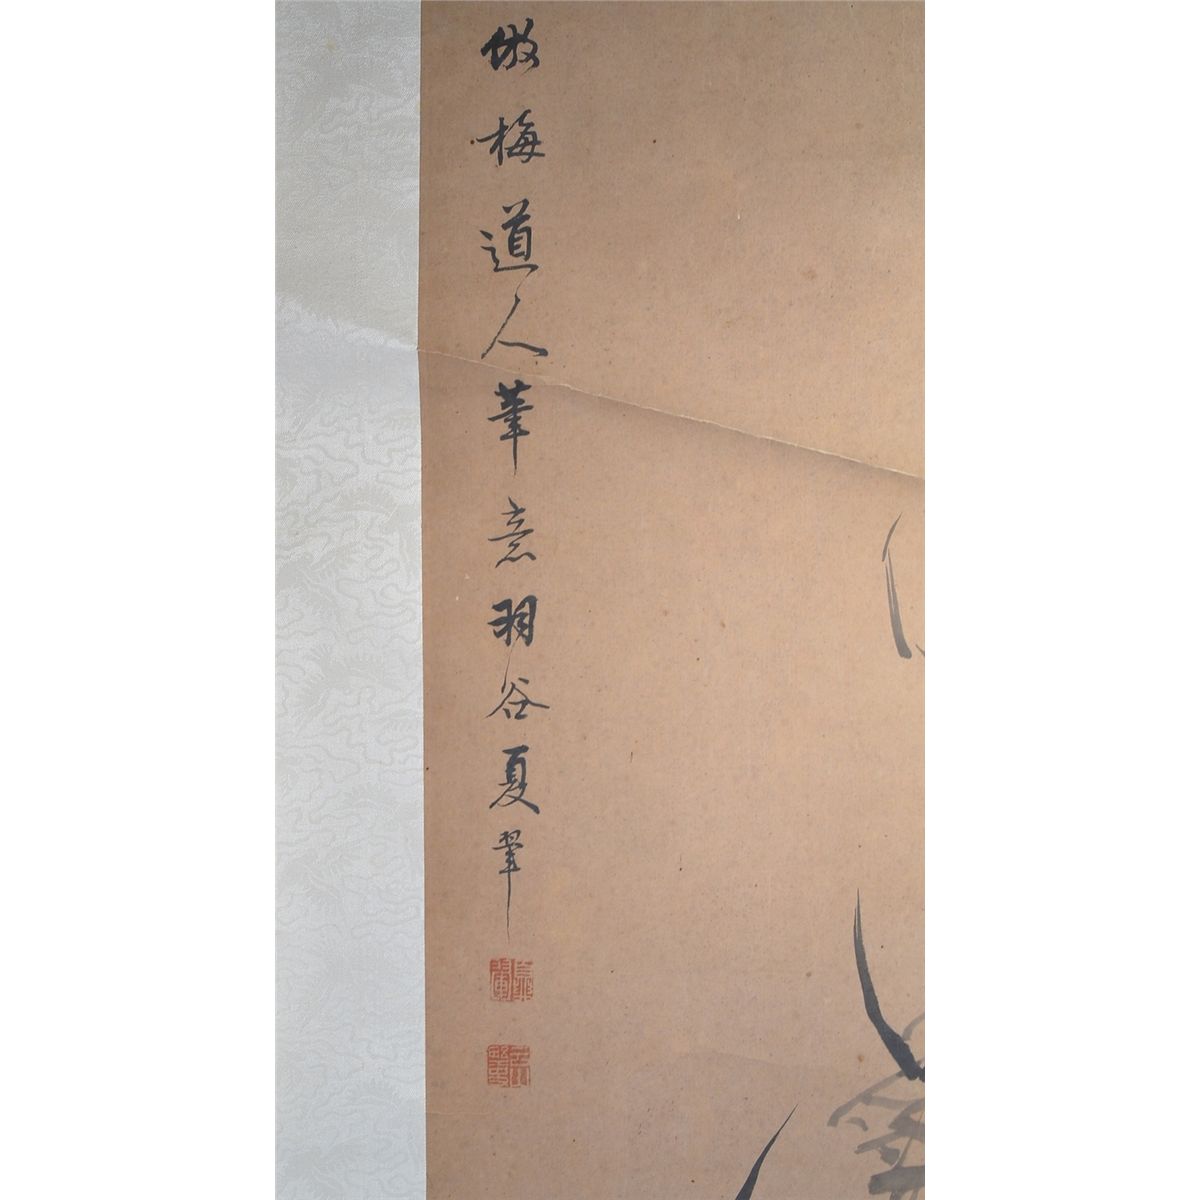 倣梅道人筆意羽谷夏翬